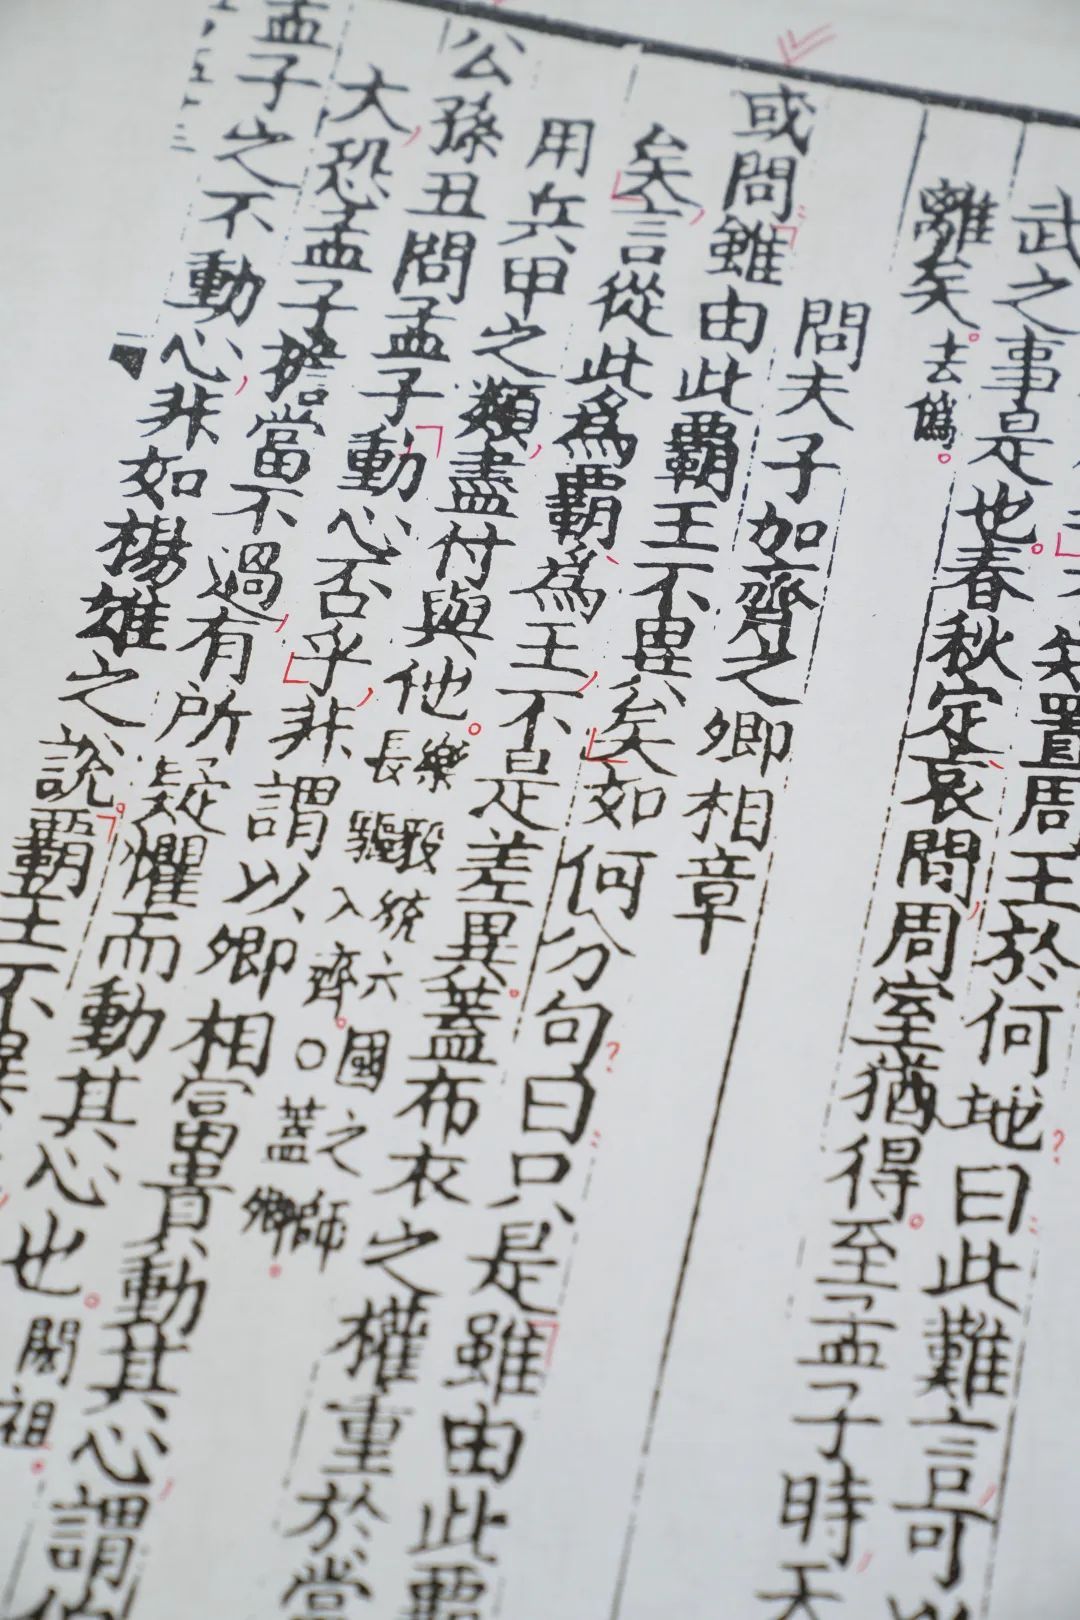 知置周王於何地？曰：此難言可
武之事是也。春秋定、哀間，周室猶得。至孟子時天
離矣。去偽。
問夫子加齊之卿相章
或問：「雖由此霸王不異矣」如何分句？曰：只是「雖由此霸
矣」，言從此為霸、為王，不是差異。蓋布衣之權重於當
用兵甲之類，盡付與他。樂毅統六國之師
長驅入齊。○蓋卿。
公孫丑問孟子「動心否乎」，非謂以卿相富貴動其心謂
大，恐孟子擔當不過，有所疑懼而動其心也。閎祖。
孟子之不動心，非如楊雄之說。「霸王不